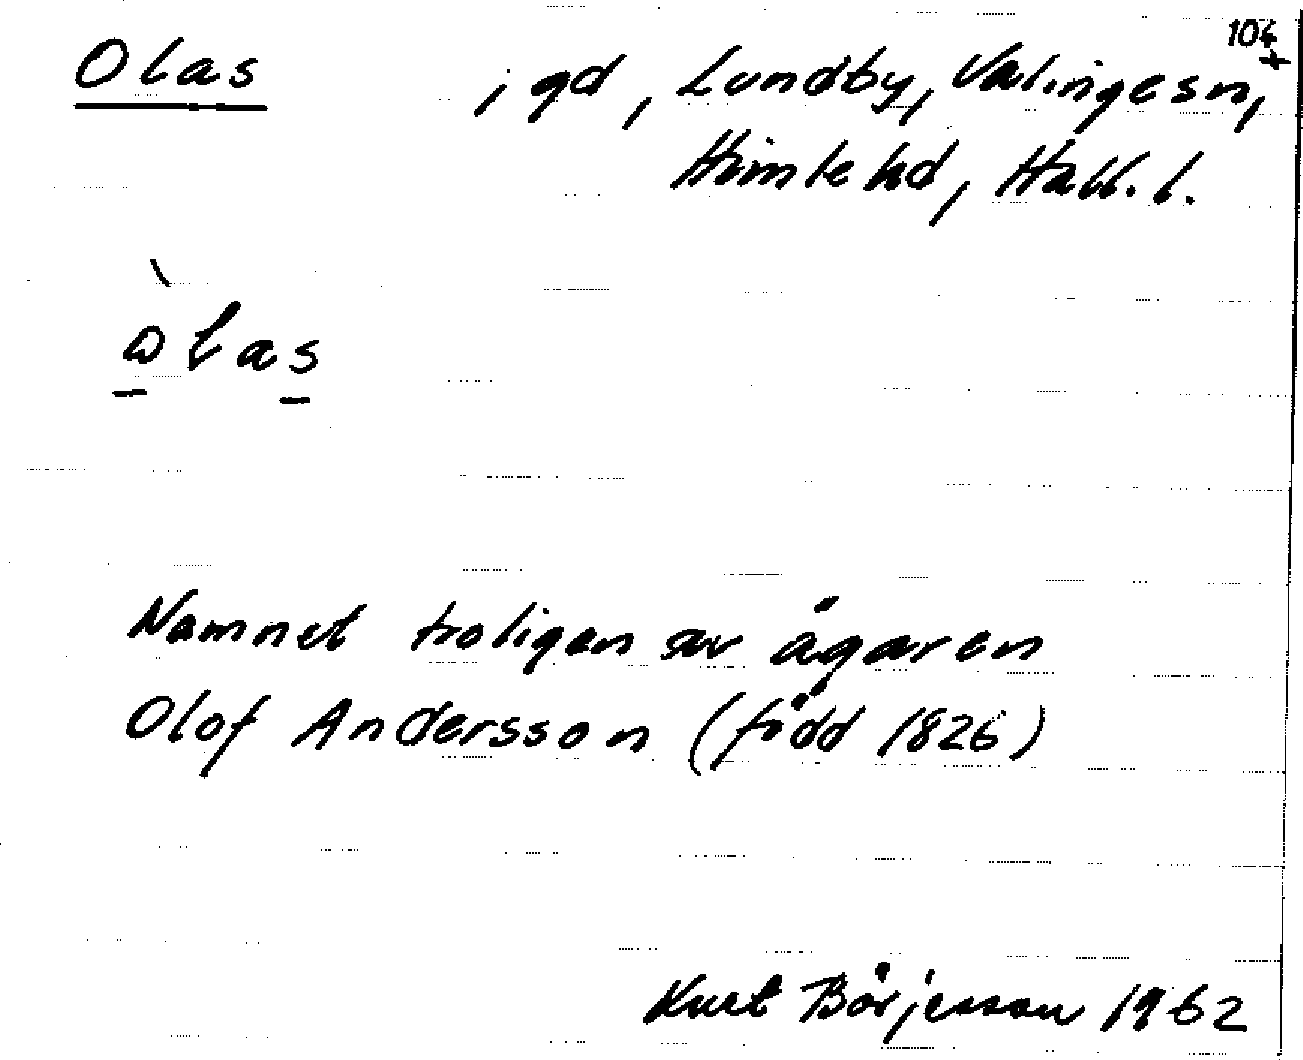 104
Olas , gd, Lundby, Valinge sn,
Himle hd, Hall. l.
òlas
Namnet troligen av ägaren
Olof Andersson (född 1826)
Kurt Börjesson 1962